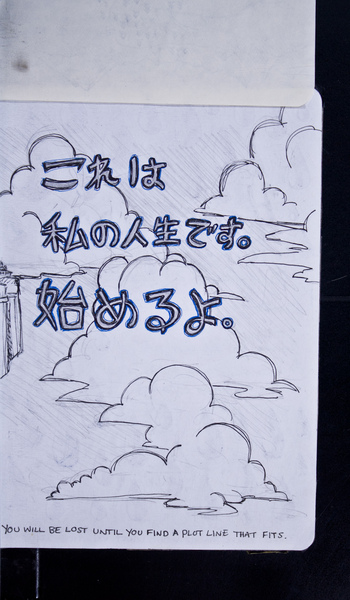 これは
私の人生です。
始めるよ。
YOU WILL BE LOST UNTIL YOU FIND A PLOT LINE THAT FITS.